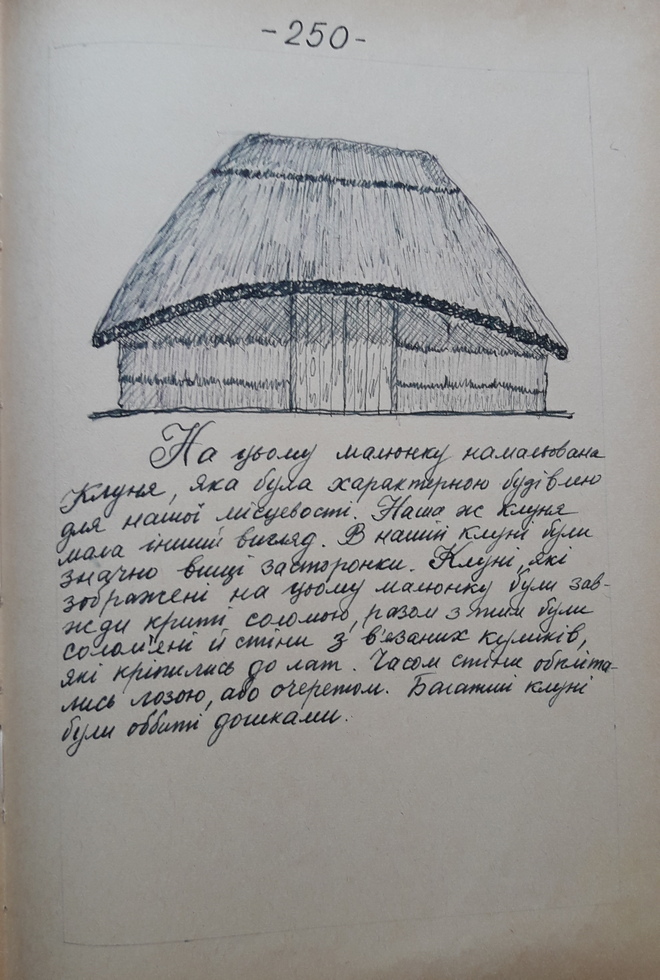 -250-
На цьому малюнку намальована
Клуня, яка була характерною будівлею
для нашої місцевості. Наша ж клуня
мала інший вигляд. В нашій клуні були
значно вищі засторонки. Клуні, які
зображені на цьому малюнку були зав-
жди криті соломою, разом з тим були
солом'ені й стіни з в'язаних куликів,
які кріпились до лат. Часом стіни обпліта-
лись лозою, або очеретом. Багатші клуні
були оббиті дошками.